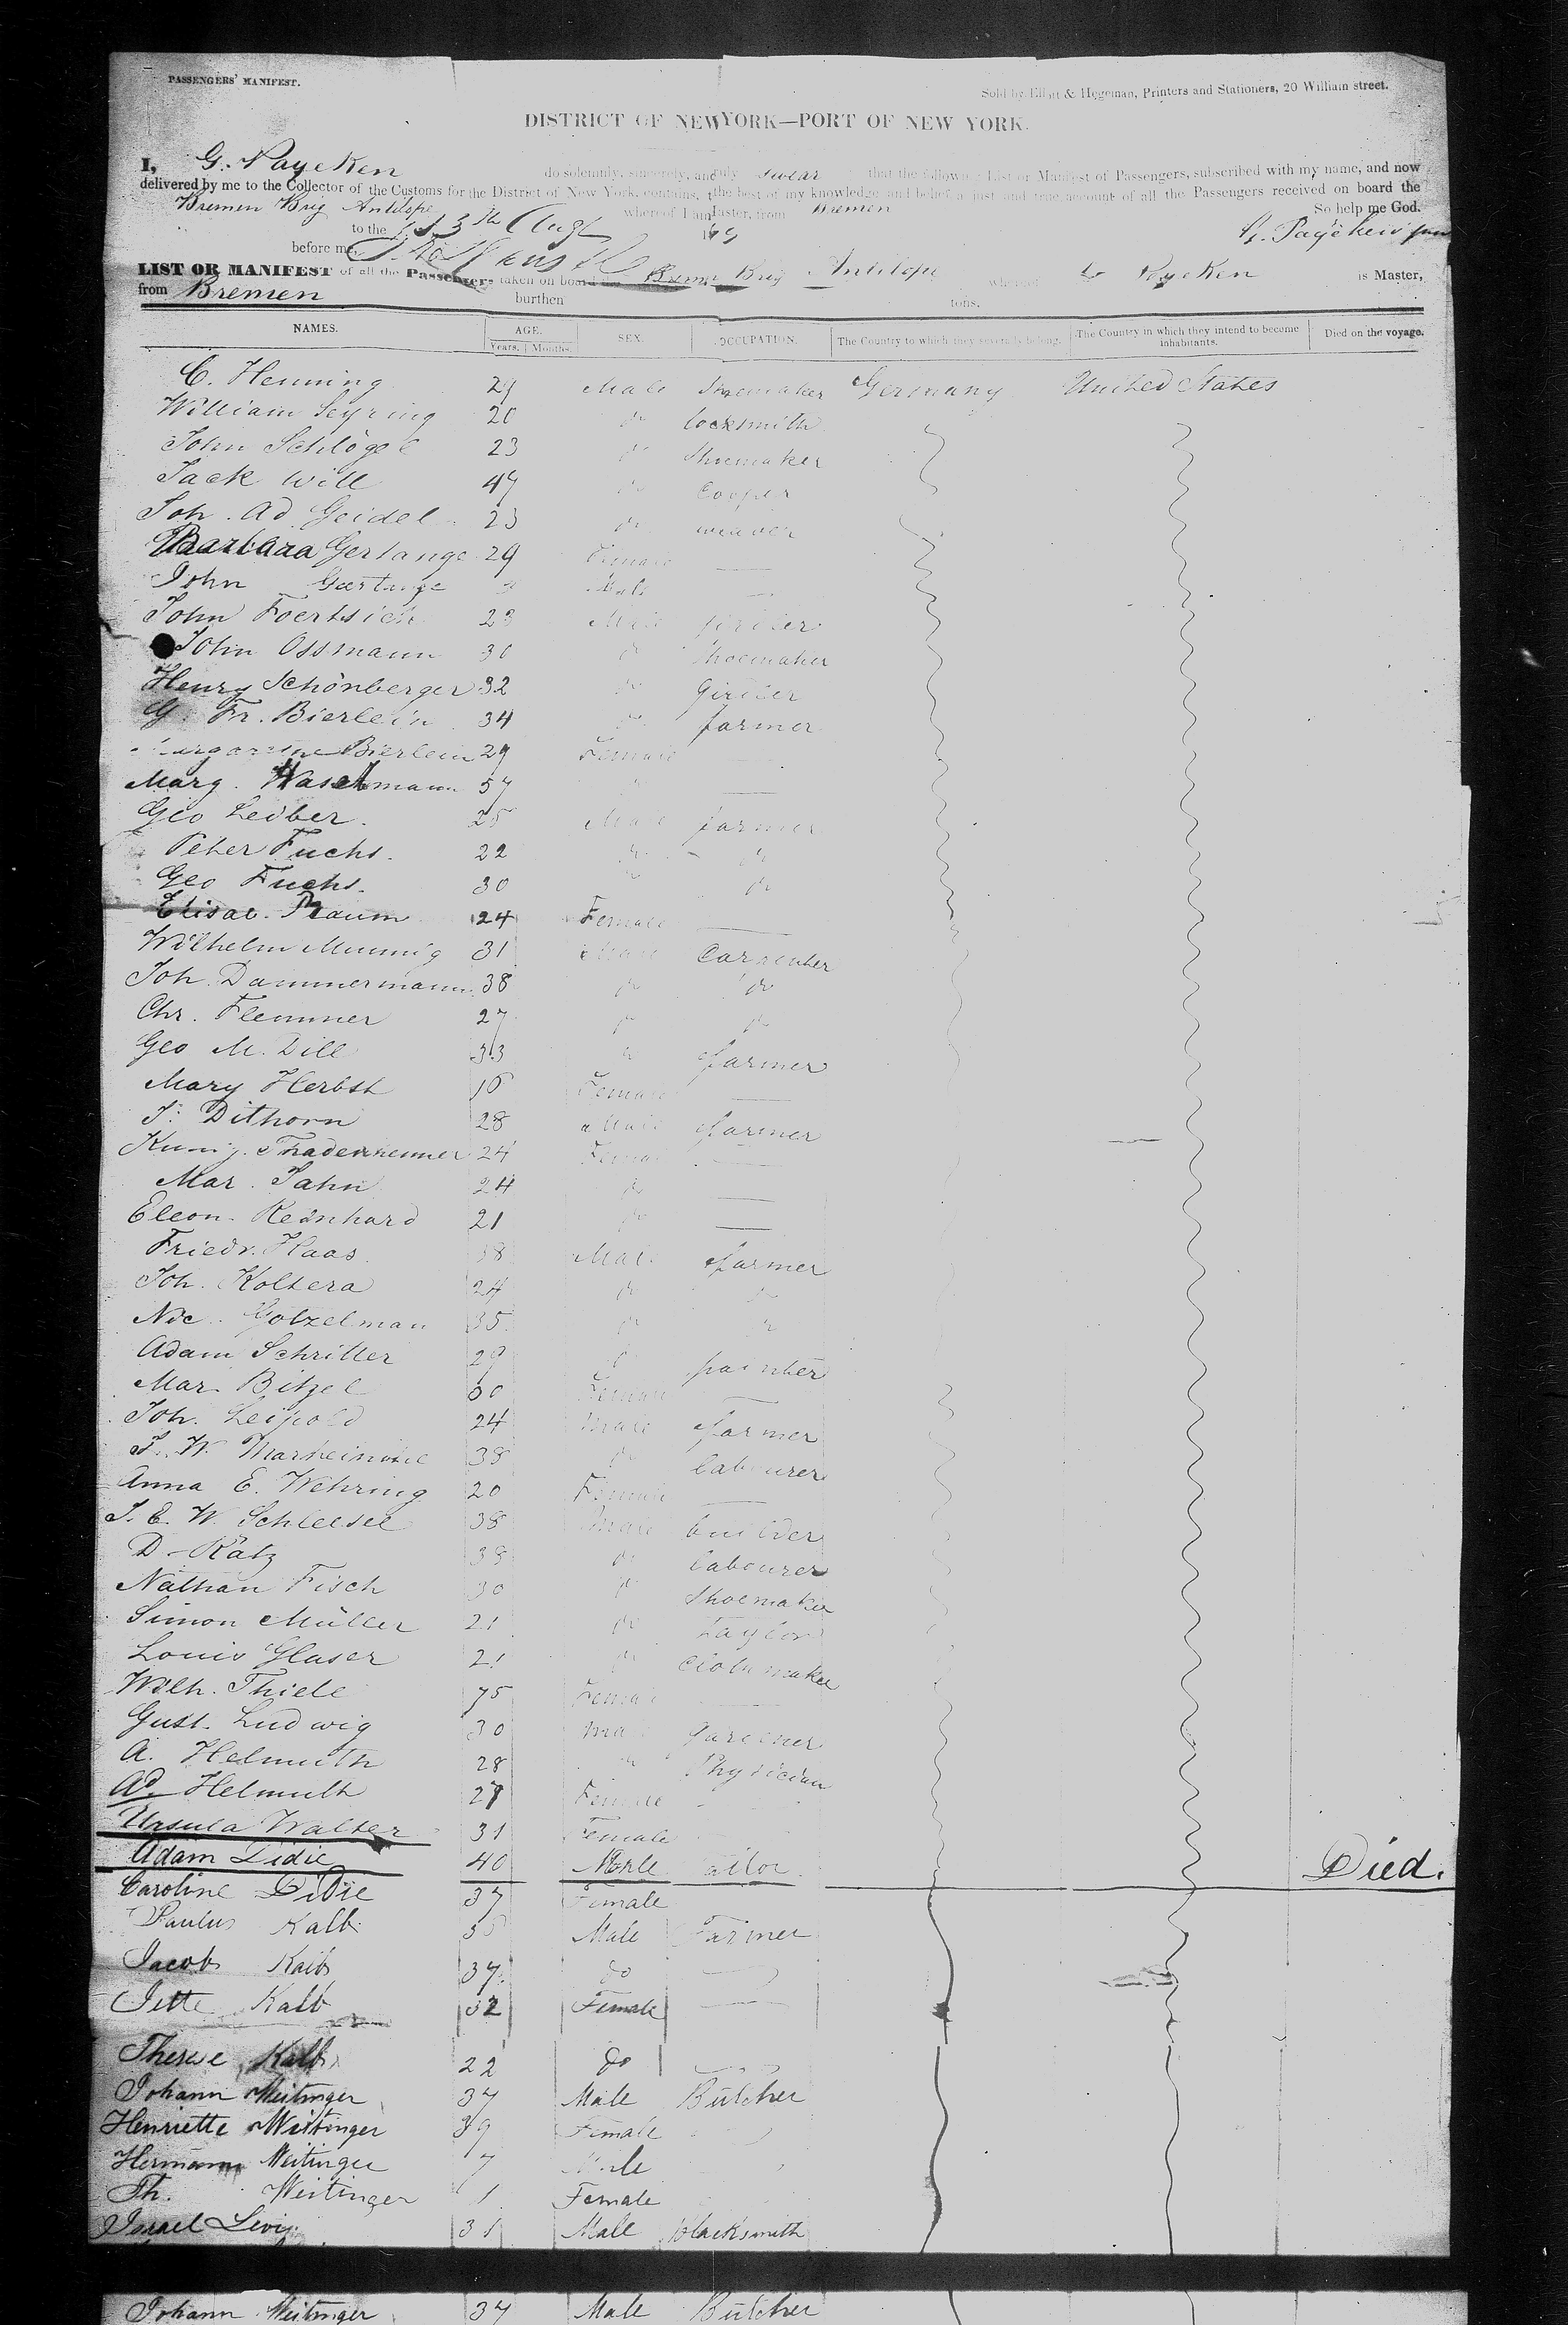 PASSENGERS' MANIFEST.
Sold by Elliot & Hegeman, Printers and Stationers, 20 William street.
DISTRICT OF NEW YORK—PORT OF NEW YORK.
I, G. Paycken do solemnly, sincerely, and truly swear that the following List or Manifest of Passengers, subscribed with my name, and now
delivered by me to the Collector of the Customs for the District of New York, contains, to the best of my knowledge and belief a just and true account of all the Passengers received on board the
Bremen Brig Antilope whereof I am Master, from Bremen
So help me God.
to the 13th Augt
before me,
LIST OR MANIFEST of all the Passengers taken on board the Bremen Brig Antilope whereof G Paycken is Master,
from Bremen burthen tons.
NAMES. AGE. SEX. OCCUPATION. The Country to which they severally belong. The Country in which they intend to become inhabitants. Died on the voyage.
Years. Months.
C. Henning 29 Male Shoemaker Germany United States
William Seyring 20 locksmith
John Schlögel 23 Shoemaker
Jack Will 47 Cooper
Joh. Ad Geidel 23 weaver
Barbara Gerlange 29 Female —
John 3 Male —
John Foertsich 23 Male
John Ossmann 30 Shoemaker
Henry Schönberger 32 Girdler
G. Fr. Bierlein 34 farmer
Bierlein 29 Female —
Marg. 57 —
Geo Leiber. 25 Male farmer
Peter Fuchs. 22
Geo Fuchs. 30
Elisab. 24 Female —
Wilhelm 31 Male Carpenter
Joh. Dammermann 38
Chr. Flemmer 27
Geo M. Dill 33 farmer
Mary Herbst 16 Female —
J. Dithorn 28 Male farmer
24 Female —
Mar. Jahn 24 —
Eleon. Reinhard 21 —
Friedr. Haas 38 Male farmer
Joh. Koltera 24
Nic. Götzelman 35
Adam Schriller 29 painter
Mar. Bitzel 60 Female —
Joh. Leipold 24 Male farmer
J. W. 38 labourer
Anna E. Wehring 20 Female —
J. E. W. 38 Male builder
D. Katz 38 labourer
Nathan Fisch 30 Shoemaker
Simon Müller 21 Taylor
Louis Glaser 21 Clothmaker
Wilh. Thiele 75 Female —
Gust. Ludwig 30 Male gardener
A. Helmuth 28 Physician
Ad. Helmuth 27 Female
Ursula Walter 31 Female
Adam Didie 40 Male Tailor Died.
Caroline Didie 37 Female
Paulus Kalb 35 Male Farmer
Jacob Kalb 37 do —
Jette Kalb 32 Female —
Therese Kalb 22 do
Johann Meitinger 37 Male Butcher
Henriette Meitinger 39 Female
Hermann Meitinger 7 Male
Th. Meitinger 1 Female
Israel Levy 31 Male Blacksmith
Johann Meitinger 37 Male Butcher